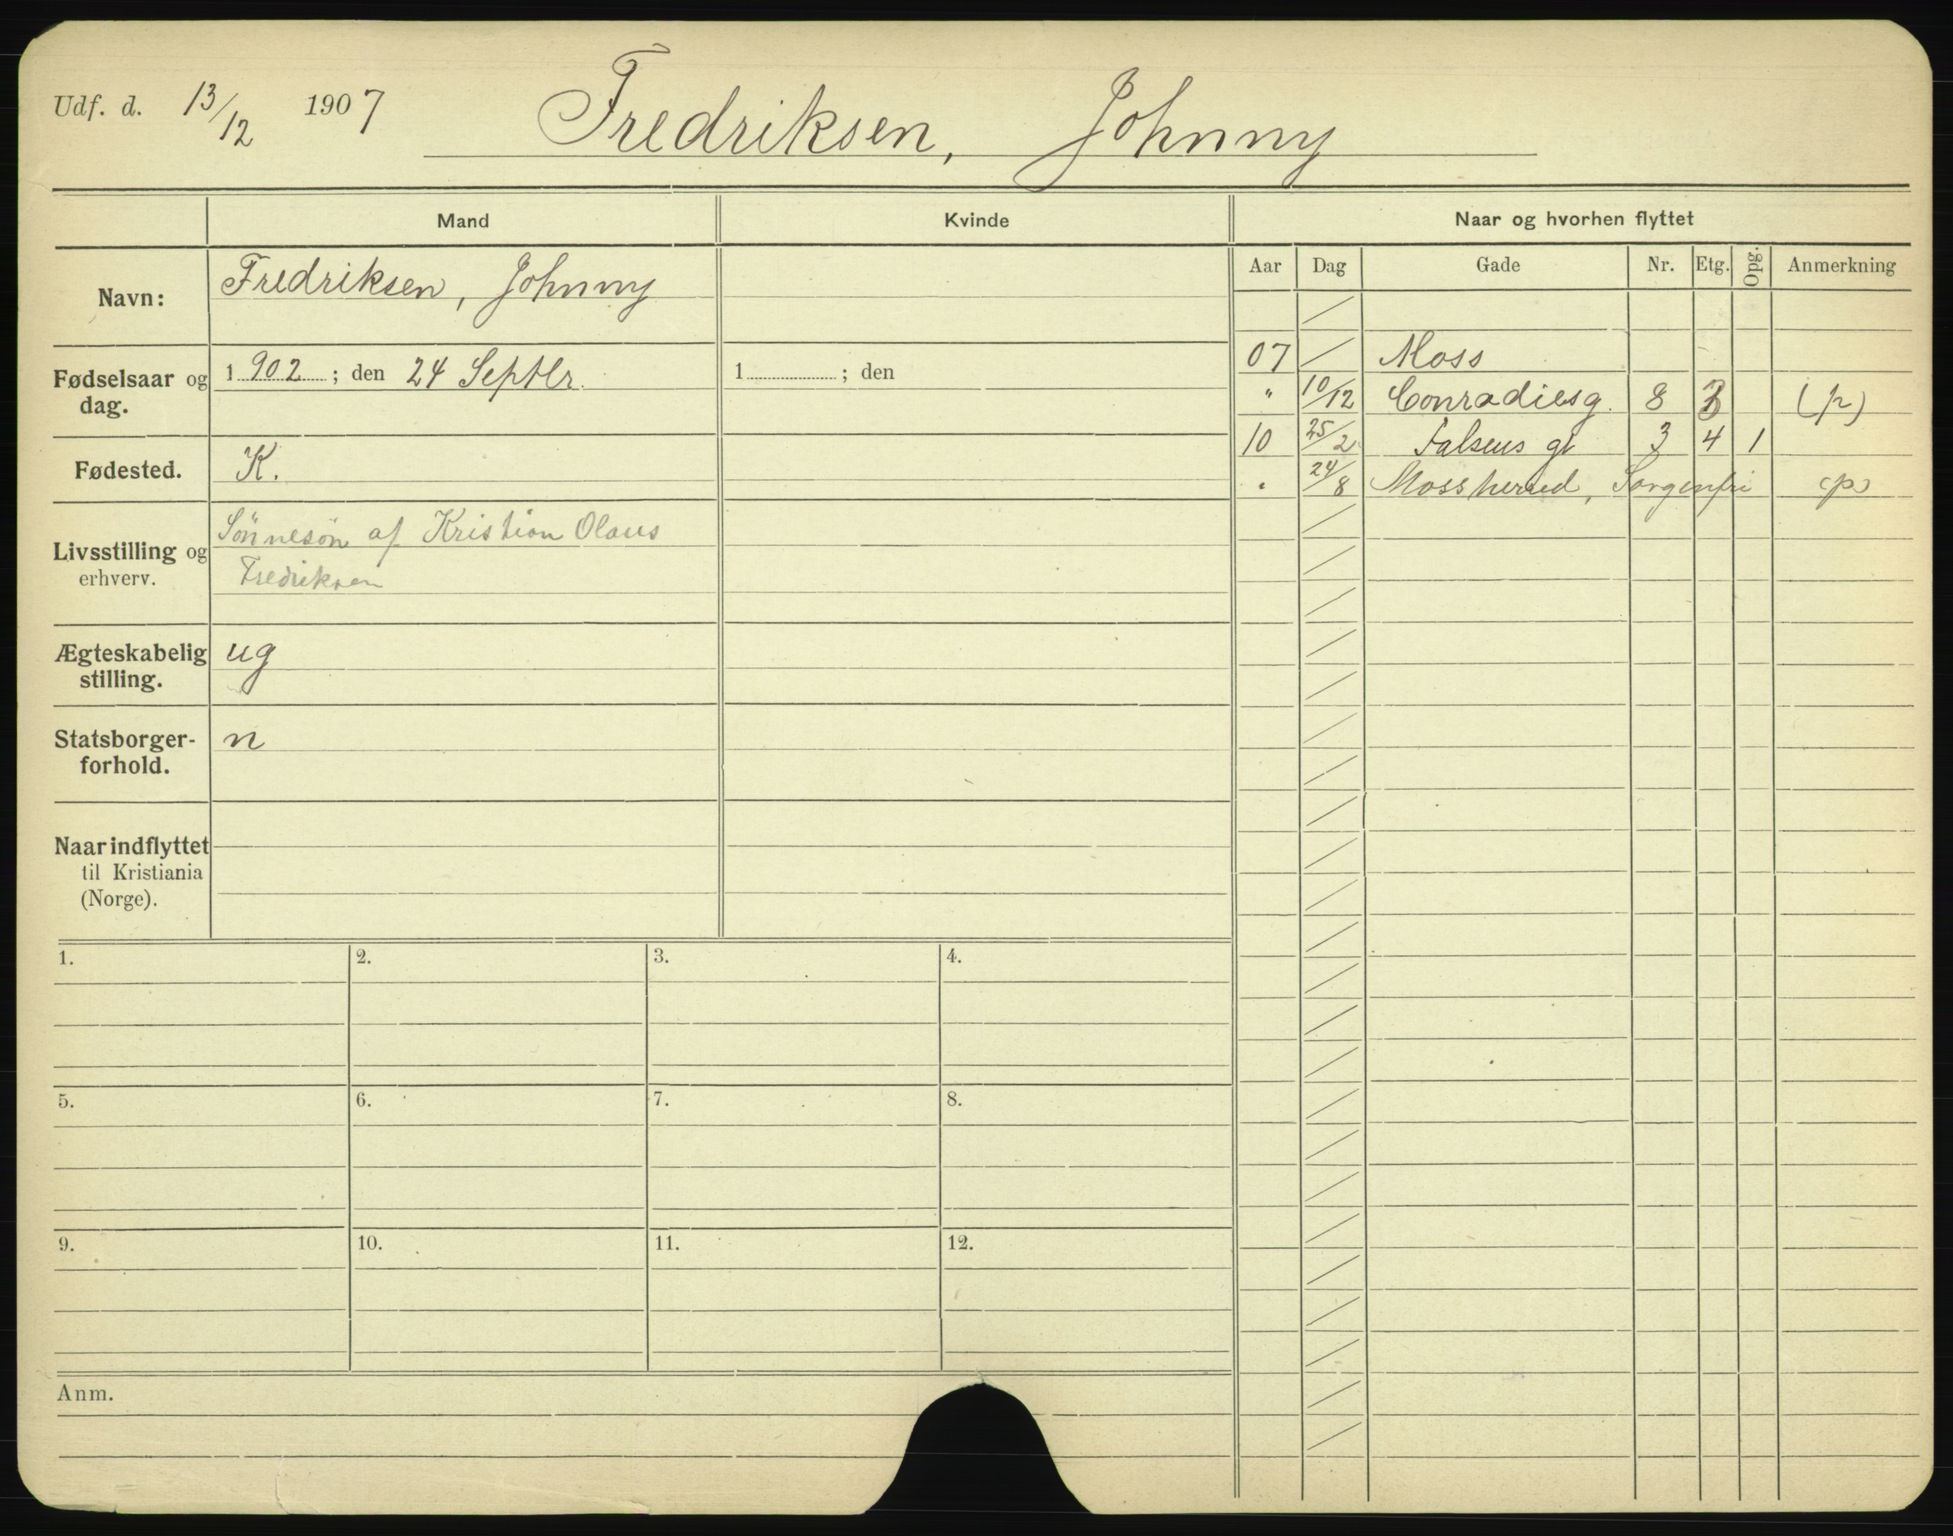 Udf. d. 13/12 1907 Fredriksen, Johnny
Mand Kvinde Naar og hvorhen flyttet
Aar Dag Gade Nr. Etg. Opg. Anmerkning
Navn: Fredriksen, Johnny
Fødselsaar og dag. 1902; den 24 Septbr. 1 ; den
Fødested. K.
Livsstilling og erhverv. Sønnesøn af Kristian Olaus
Fredriksen
Ægteskabelig stilling. ug
Statsborger-forhold. n
Naar indflyttet
til Kristiania
(Norge).
07 / Moss
" 10/12 Conradiesg. 8 3 (p)
10 25/2 Falsens gt 3 4 1
" 24/8 Moss herred, Sorgenfri (p)
1. 2. 3. 4.
5. 6. 7. 8.
9. 10. 11. 12.
Anm.